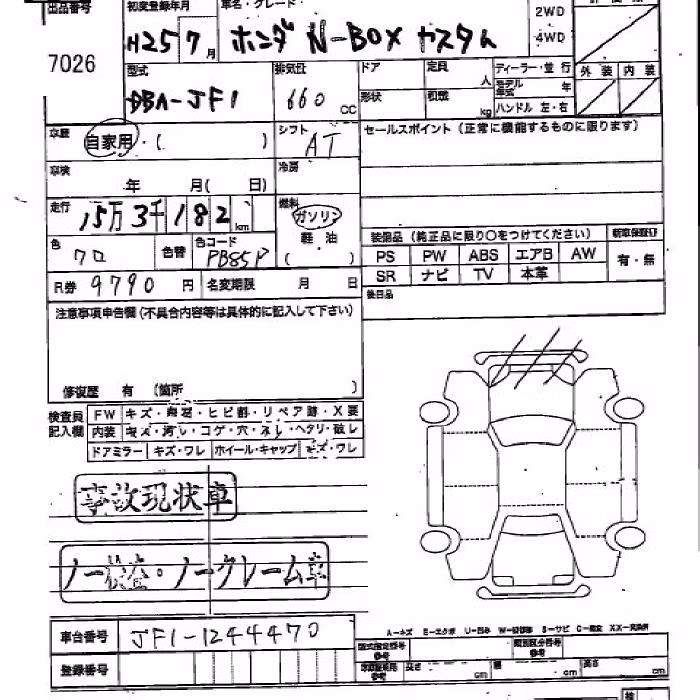 出品番号 初度登録年月 車名・グレード
7026 H25 7月 ホンダ N-BOX カスタム 2WD
4WD
型式 排気量 ドア 定員 人 ディーラー・並行 外装 内装
DBA-JF1 660 CC 形状 積載 kg モデル年式 年
ハンドル 左・右
車歴 自家用・( ) シフト AT セールスポイント(正常に機能するものに限ります)
車検 年 月( 日) 冷房
走行 15万3千182km 燃料 ガソリン
軽油
( )
色 クロ 色替 色コード PB85P 装備品(純正品に限り○をつけてください) 新車保証付
PS PW ABS エアB AW 有・無
SR ナビ TV 本革
R券 9790円 名変期限 月 日 後日品
注意事項申告欄(不具合内容等は具体的に記入して下さい)
修復歴 有 (箇所 )
検査員 FW キズ・飛石・ヒビ割・リペア跡・X要
記入欄 内装 キズ・汚レ・コゲ・穴・スレ・ヘタリ・破レ
ドアミラー キズ・ワレ ホイール・キャップ キズ・ワレ
事故現状車
ノー検査・ノークレーム車
A-キズ E-エクボ U-凹み S-サビ
車台番号 JF1-1244470 型式指定番号 参考 類別区分番号 参考
登録番号 参考 長さ cm 幅 cm 高さ cm